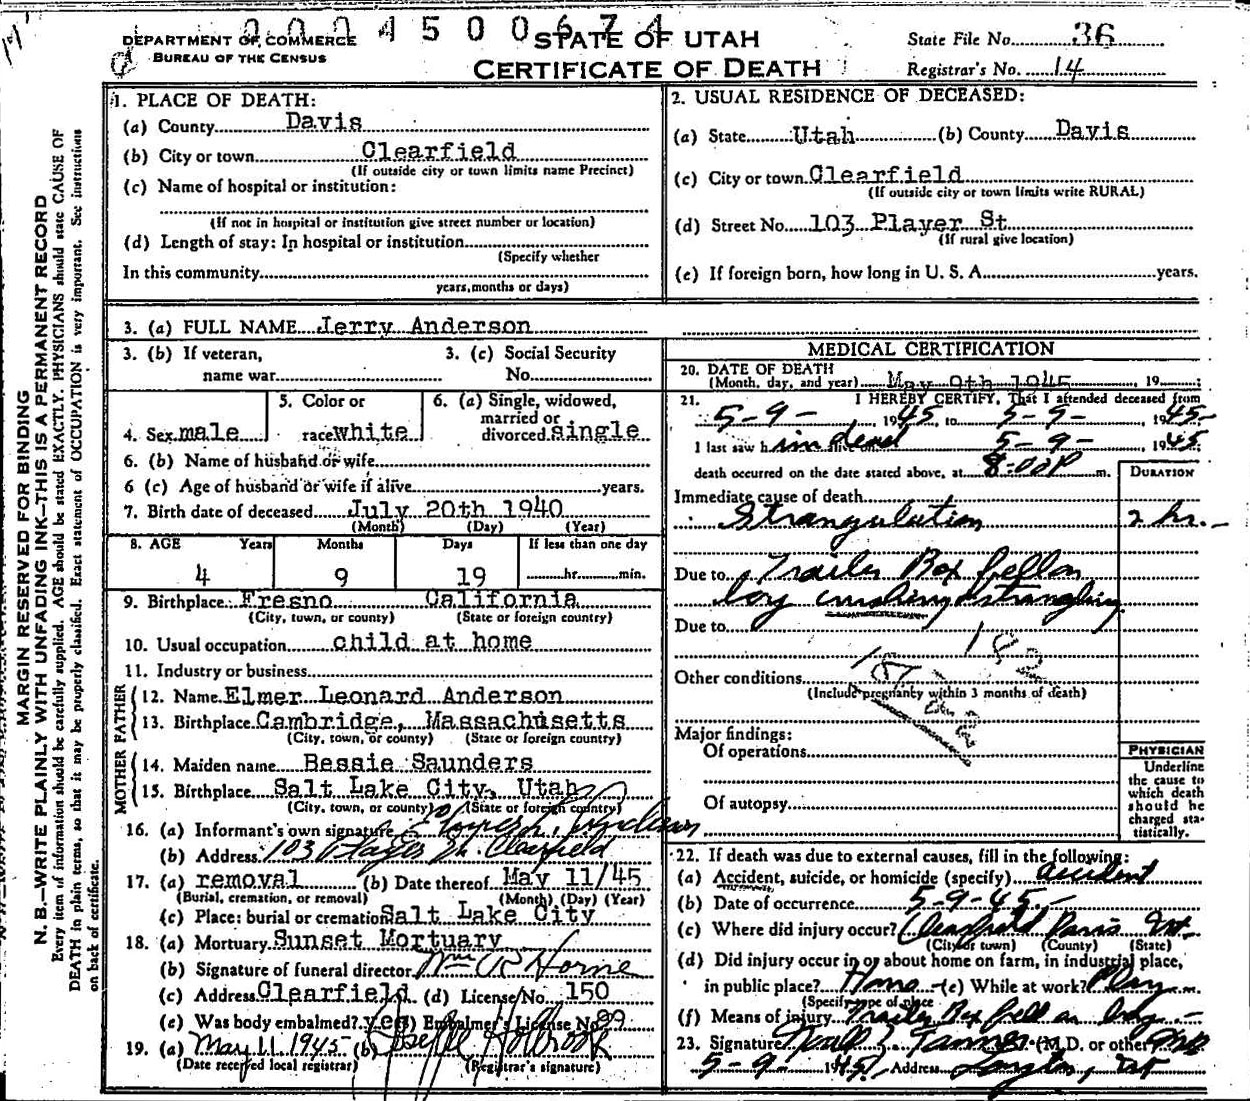 2 0 0 4 5 0 0 6 7 4
DEPARTMENT OF COMMERCE
BUREAU OF THE CENSUS
STATE OF UTAH
CERTIFICATE OF DEATH
State File No. 36
Registrar's No. 14
MARGIN RESERVED FOR BINDING
N. B.—WRITE PLAINLY WITH UNFADING INK—THIS IS A PERMANENT RECORD
Every item of information should be carefully supplied. AGE should be stated EXACTLY. PHYSICIANS should state CAUSE OF
DEATH in plain terms, so that it may be properly classified. Exact statement of OCCUPATION is very important. See instructions
on back of certificate.
1. PLACE OF DEATH:
(a) County Davis
(b) City or town Clearfield
(If outside city or town limits name Precinct)
(c) Name of hospital or institution:
(If not in hospital or institution give street number or location)
(d) Length of stay: In hospital or institution
(Specify whether
In this community
years, months or days)
2. USUAL RESIDENCE OF DECEASED:
(a) State Utah (b) County Davis
(c) City or town Clearfield
(If outside city or town limits write RURAL)
(d) Street No. 103 Player St
(If rural give location)
(e) If foreign born, how long in U. S. A. years.
3. (a) FULL NAME Jerry Anderson
3. (b) If veteran, name war
3. (c) Social Security No.
4. Sex male
5. Color or race white
6. (a) Single, widowed, married or divorced single
6. (b) Name of husband or wife
6 (c) Age of husband or wife if alive years.
7. Birth date of deceased July 20th 1940
(Month) (Day) (Year)
8. AGE Years Months Days If less than one day
4 9 19 hr. min.
9. Birthplace Fresno California
(City, town, or county) (State or foreign country)
10. Usual occupation child at home
11. Industry or business
FATHER
12. Name Elmer Leonard Anderson
13. Birthplace Cambridge, Massachusetts
(City, town, or county) (State or foreign country)
MOTHER
14. Maiden name Bessie Saunders
15. Birthplace Salt Lake City, Utah
(City, town, or county) (State or foreign country)
16. (a) Informant's own signature
(b) Address 103 Player St. Clearfield
17. (a) removal (b) Date thereof May 11/45
(Burial, cremation, or removal) (Month) (Day) (Year)
(c) Place: burial or cremation Salt Lake City
18. (a) Mortuary Sunset Mortuary
(b) Signature of funeral director Wm R Horne
(c) Address Clearfield (d) License No. 150
(e) Was body embalmed? yes (f) Embalmer's License No. 99
19. (a) May 11 1945 (b) Holbrook
(Date received local registrar) (Registrar's signature)
MEDICAL CERTIFICATION
20. DATE OF DEATH
(Month, day, and year) May 9th 1945, 19
21. I HEREBY CERTIFY, That I attended deceased from
5-9-, 1945, to 5-9-, 1945-
I last saw him dead alive on 5-9- 1945
death occurred on the date stated above, at 8:00 P m.
DURATION
Immediate cause of death
Strangulation 2 hr.-
Due to Trailer Box fell on
boy crushing & strangling
Due to
182
Other conditions
(Include pregnancy within 3 months of death)
Major findings:
Of operations
Of autopsy
PHYSICIAN
Underline
the cause to
which death
should be
charged sta-
tistically.
22. If death was due to external causes, fill in the following:
(a) Accident, suicide, or homicide (specify) accident
(b) Date of occurrence 5-9-45-
(c) Where did injury occur? Clearfield Davis Ut.
(City or town) (County) (State)
(d) Did injury occur in or about home on farm, in industrial place,
in public place? Home (e) While at work? Play
(Specify type of place
(f) Means of injury Trailer Box fell on boy -
23. Signature Noall Z. Tanner (M.D. or other) MD
5-9- 1945 Address Layton, Ut